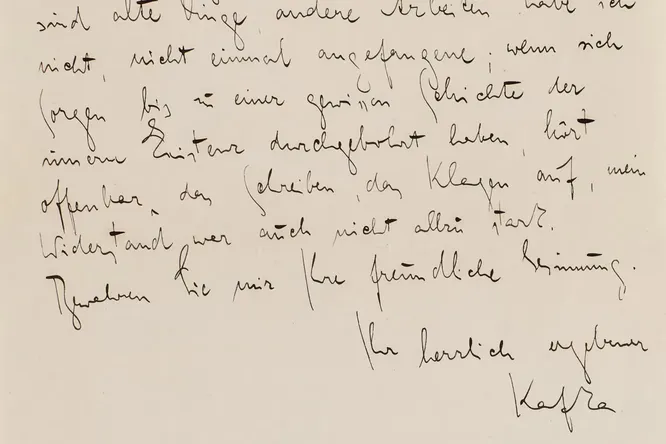 sind alte Dinge, andere Arbeiten habe ich
nicht, nicht einmal angefangene; wenn sich
Sorgen bis zu einer gewissen Schichte der
innern Existenz durchgebohrt haben, hört
offenbar das Schreiben, das Klagen auf, mein
Widerstand war auch nicht allzu stark.
Bewahren Sie mir Ihre freundliche Gesinnung.
Ihr herzlich ergebener
Kafka